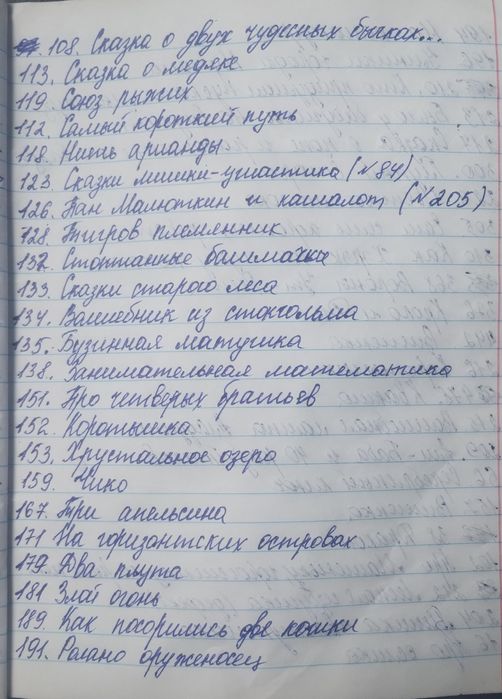 108. Сказка о двух чудесных бычках...
113. Сказка о медяке
119. Союз рыжих
112. Самый короткий путь
118. Нить арианды
123. Сказки мишки-ушастика (№84)
126. Пан Малюткин и кашалот (№205)
128. Тигров племянник
132. Стоптанные башмачки
133. Сказки старого леса
134. Волшебник из стокгольма
135. Бузинная матушка
138. Занимательная математика
151. Про четверых братьев
152. Коротышка
153. Хрустальное озеро
159. Чико
167. Три апельсина
171 На горизантских островах
179. Два плута
181 Злой огонь
189. Как посорились две кошки
191. Роланд оруженосец